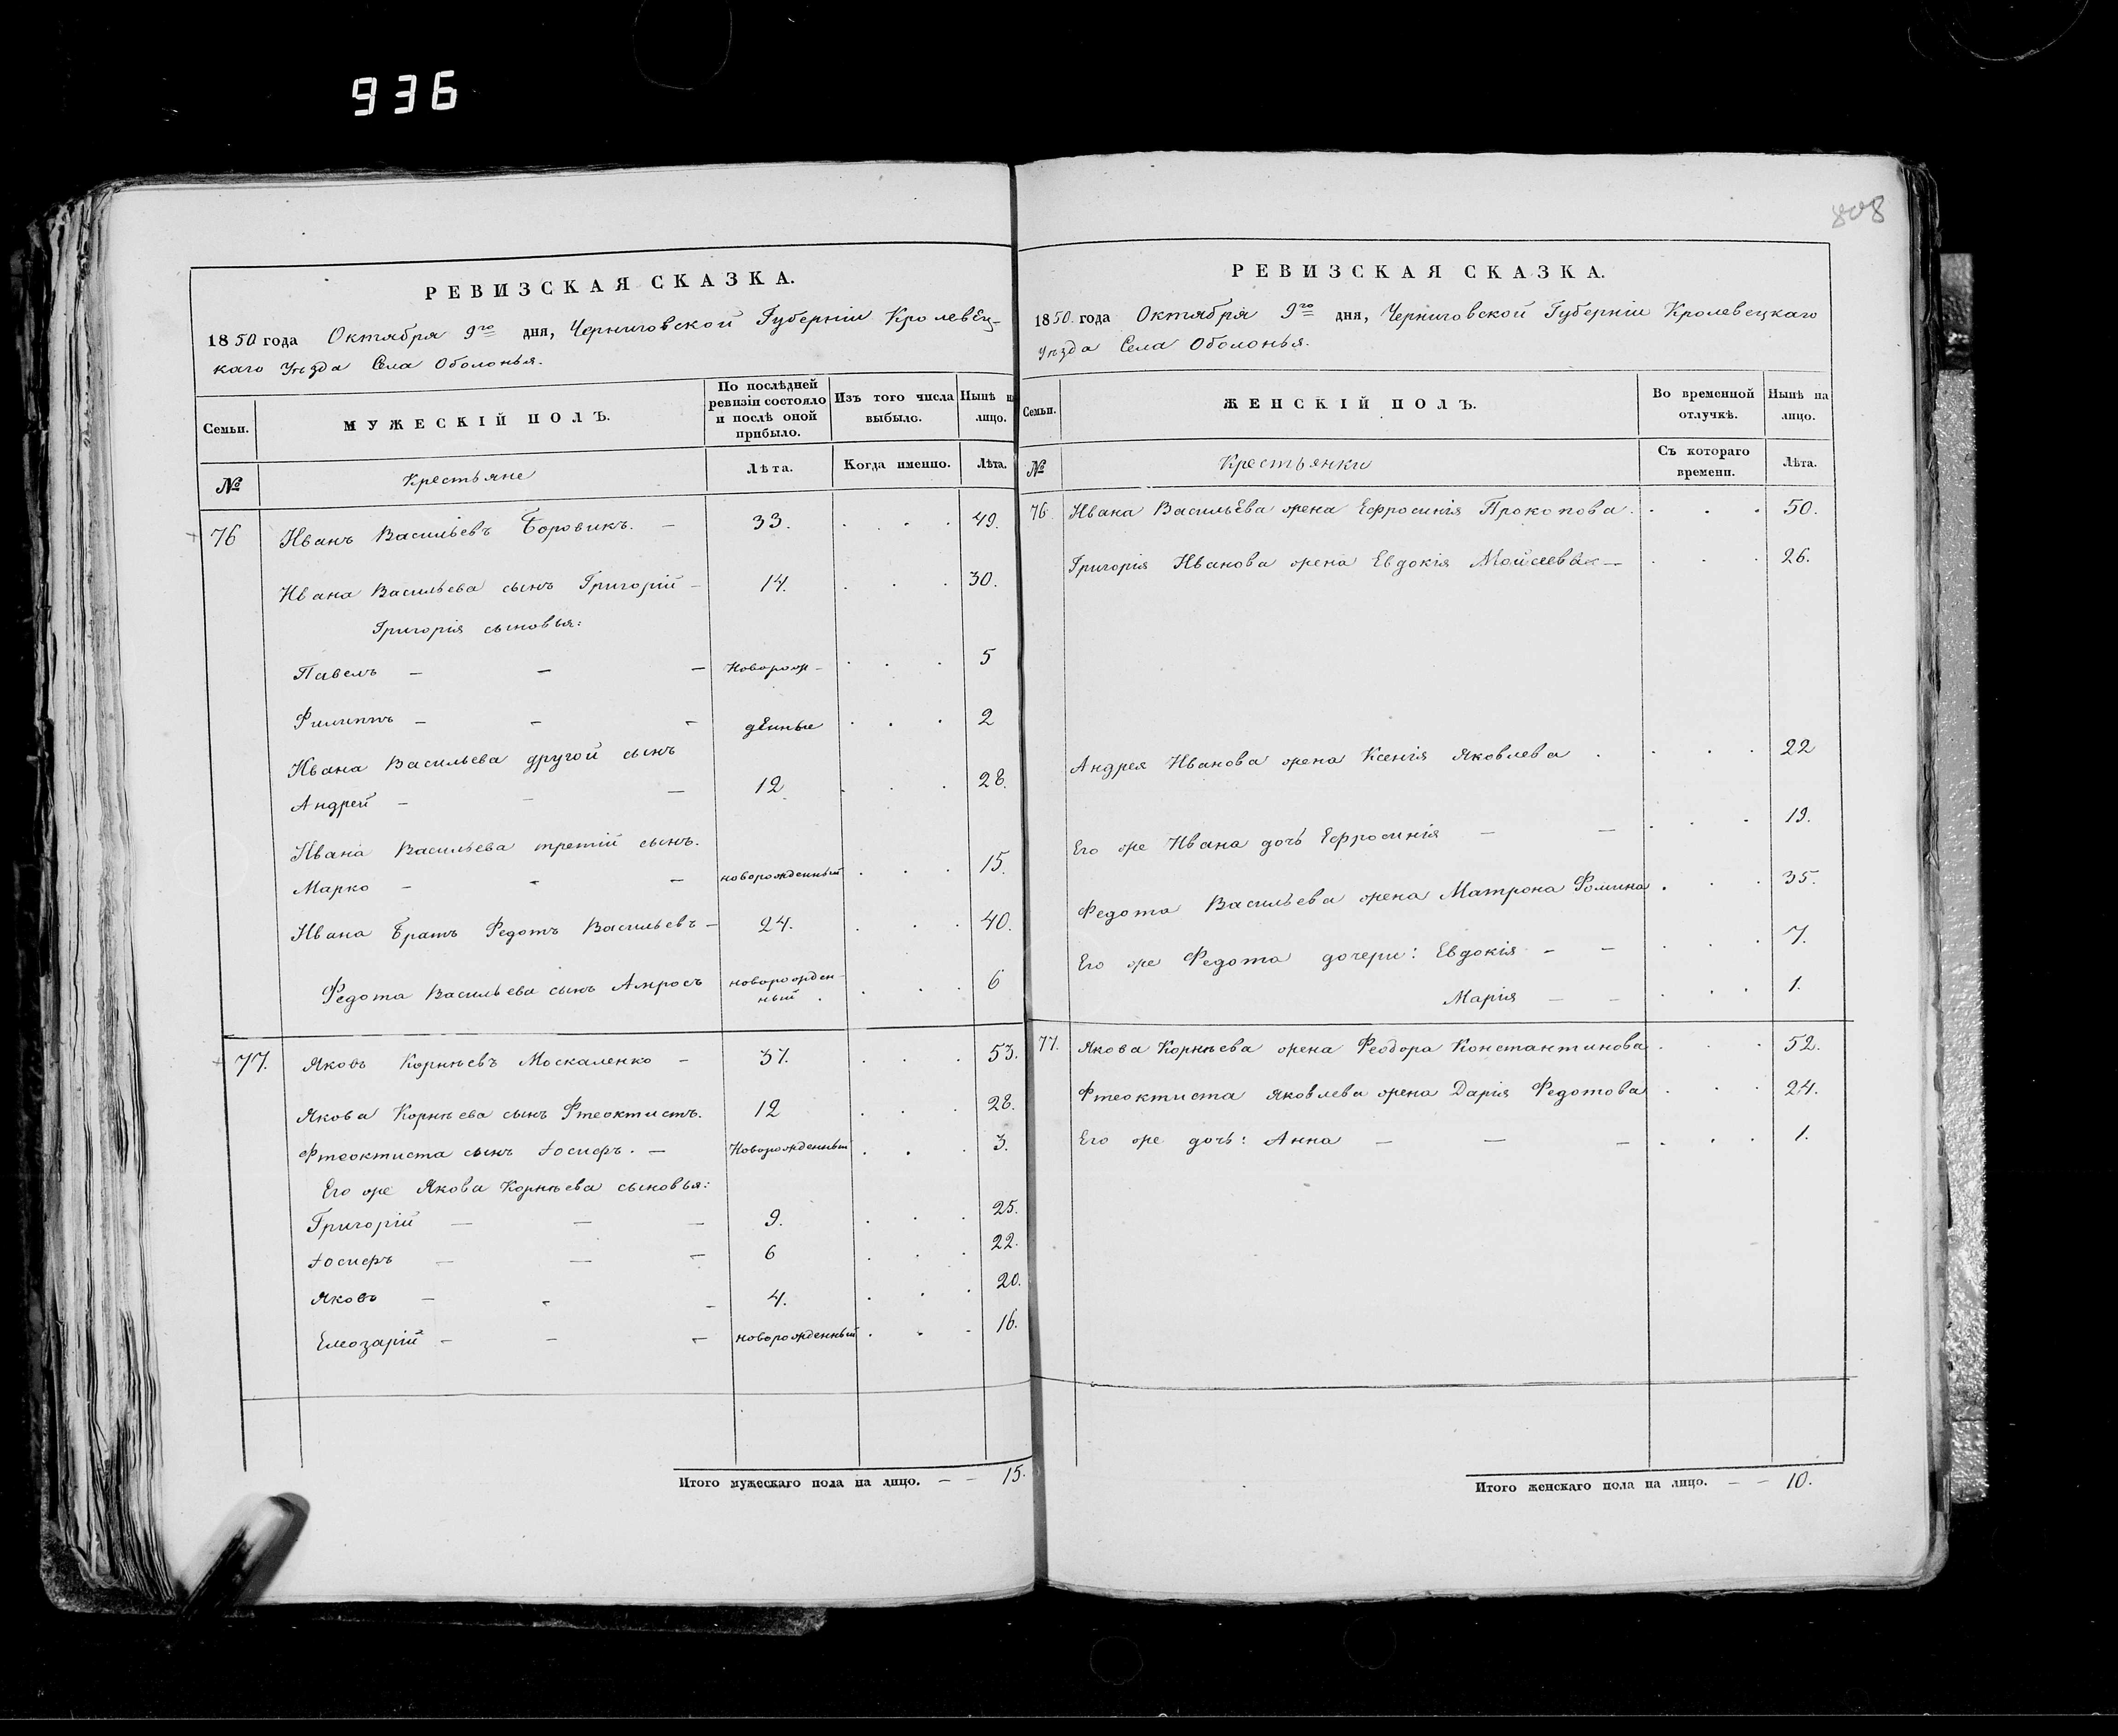 936
808
РЕВИЗСКАЯ СКАЗКА.
1850 года Октября 9го дня, Черниговской Губерніи Кролевец-
каго Уѣзда Села Оболонья.
Семьи.
МУЖЕСКІЙ ПОЛЪ.
По послѣдней
ревизіи состояло
и послѣ оной
прибыло.
Изъ того числа
выбыло.
Нынѣ н
лицо.
№
Крестьяне
Лѣта.
Когда именно.
Лѣта.
76 Иванъ Васильевъ Боровикъ. — 33. 49.
Ивана Васильева сынъ Григорій — 14. 30.
Григорія сыновья:
Павелъ — — — Новорож- 5
Филиппъ — — — денные 2
Ивана Васильева другой сынъ
Андрей — — — 12 28.
Ивана Васильева третій сынъ.
Марко — — — новорожденный 15.
Ивана Братъ Федотъ Васильевъ — 24. 40.
Федота Васильева сынъ Амросъ новорожден-
ный 6
77. Яковъ Корнѣевъ Москаленко — 37. 53.
Якова Корнѣева сынъ Фтеоктистъ. 12 28.
Фтеоктиста сынъ Іосифъ. — Новорожденный 3.
Его же Якова Корнѣева сыновья:
Григорій — — — 9. 25.
Іосифъ — — — 6 22.
Яковъ — — — 4. 20.
Елеозарій — — — новорожденный 16.
Итого мужескаго пола на лицо. — — 15.
РЕВИЗСКАЯ СКАЗКА.
1850 года Октября 9го дня, Черниговской Губерніи Кролевецкаго
Уѣзда Села Оболонья.
Семьи.
ЖЕНСКІЙ ПОЛЪ.
Во временной
отлучкѣ.
Нынѣ на
лицо.
№
Крестьянки
Съ котораго
времени.
Лѣта.
76 Ивана Васильева жена Ефросинія Прокопова. 50.
Григорія Иванова жена Евдокія Мойсеева — 26.
Андрея Иванова жена Ксенія Яковлева 22
Его же Ивана дочь Ефросинія — — 19.
Федота Васильева жена Матрона Фомина 35.
Его же Федота дочери: Евдокія — — 7.
Марія — — 1.
77. Якова Корнѣева жена Феодора Константинова 52.
Фтеоктиста Яковлева жена Дарія Федотова 24.
Его же дочь: Анна — — — 1.
Итого женскаго пола на лицо. — — 10.